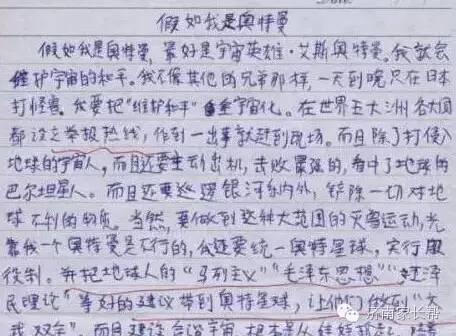 假如我是奥特曼
假如我是奥特曼,最好是宇宙英雄·艾斯奥特曼。我就会
维护宇宙的和平。我不像其他的兄弟那样,一天到晚只在日本
打怪兽。我要把“维护和平”全宇宙化。在世界五大洲各大国
都设立举报热线,作到一出事就赶到现场。而且除了打侵入
地球的宇宙人,而且还要主动出机,击败最强的,看中了地球的
巴尔坦星人。而且还要巡逻银河系内外,铲除一切对地
球不利的物质。当然,要做到这种大范围的灭害运动,光
靠我一个奥特曼是不行的,我还要统一奥特星球,实行服
役制。并把地球人的“马列主义”“毛泽东思想”“江泽
民理论”等好的建议带到奥特星球,让他们做到“
我双会”。而且建设合谐宇宙
济南家长帮